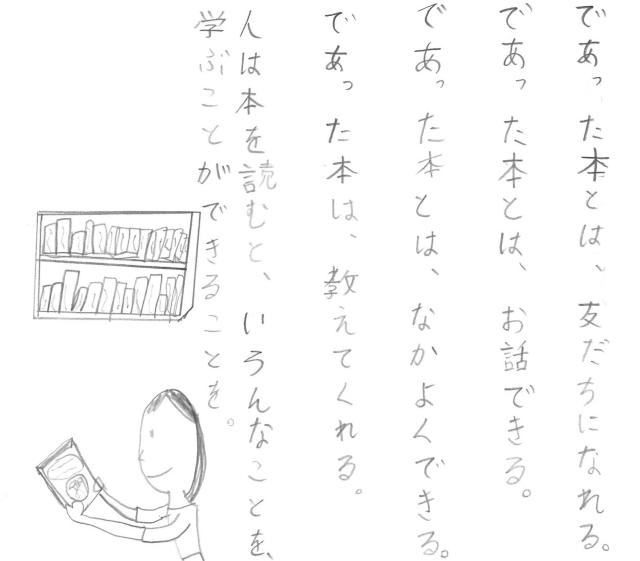 であった本とは、友だちになれる。
であった本とは、お話できる。
であった本とは、なかよくできる。
であった本は、教えてくれる。
人は本を読むと、いろんなことを、
学ぶことができることを。